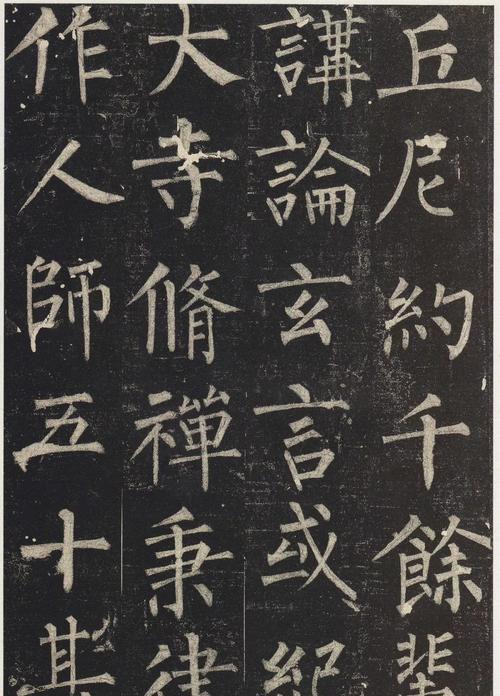 丘尼約千餘輩
講論玄言或紀
大寺脩禪秉律
作人師五十其